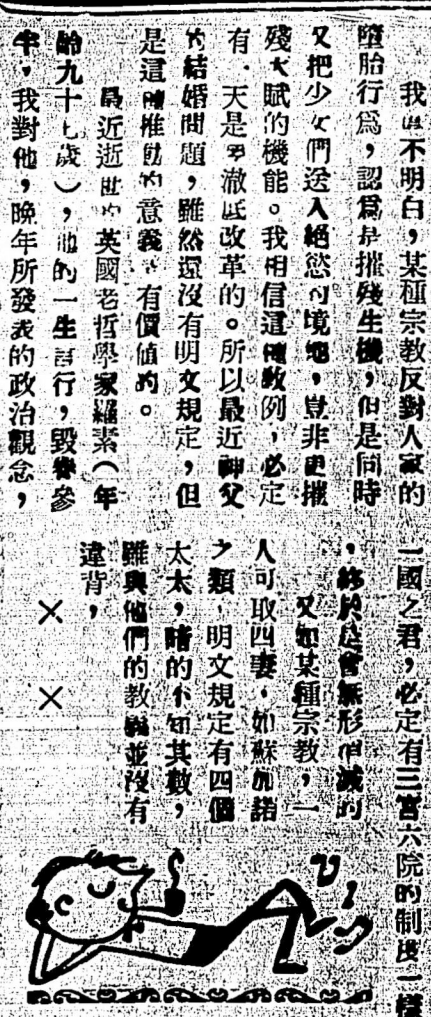 我眞不明白，某種宗教反對人家的
墮胎行爲，認爲是摧殘生機，但是同時
又把少女們送入絕慾的境地，豈非更摧
殘天賦的機能。我相信這種教例，必定
有一天是要澈底改革的。所以最近神父
的結婚問題，雖然還沒有明文規定，但
是這種推動的意義是有價値的。
最近逝世的英國老哲學家羅素（年
齡九十七歲），他的一生言行，毀譽參
半，我對他，晚年所發表的政治觀念，
一國之君，必定有三宮六院的制度一樣
，終於是會無形消滅的
又如某種宗教，一
人可取四妻，如蘇加諾
之類，明文規定有四個
太太，暗的不知其數，
雖與他們的教義並沒有
違背，
× ×